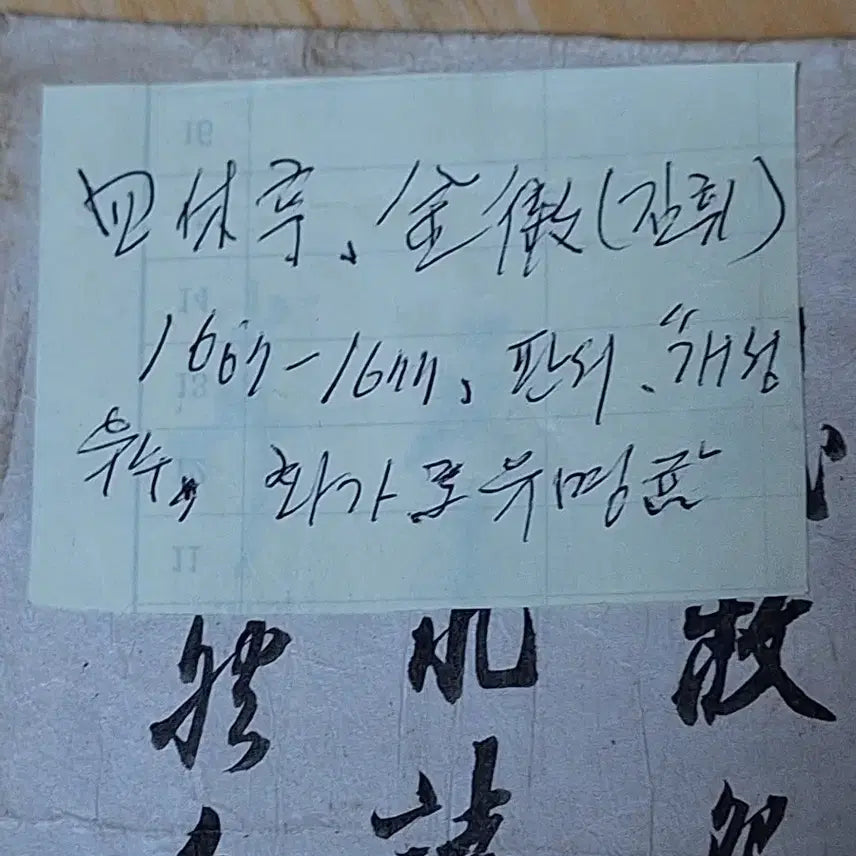 四休亭、金徽(김휘)
1607-1677、판서、"개성
유수, 화가로 유명함
散
肌